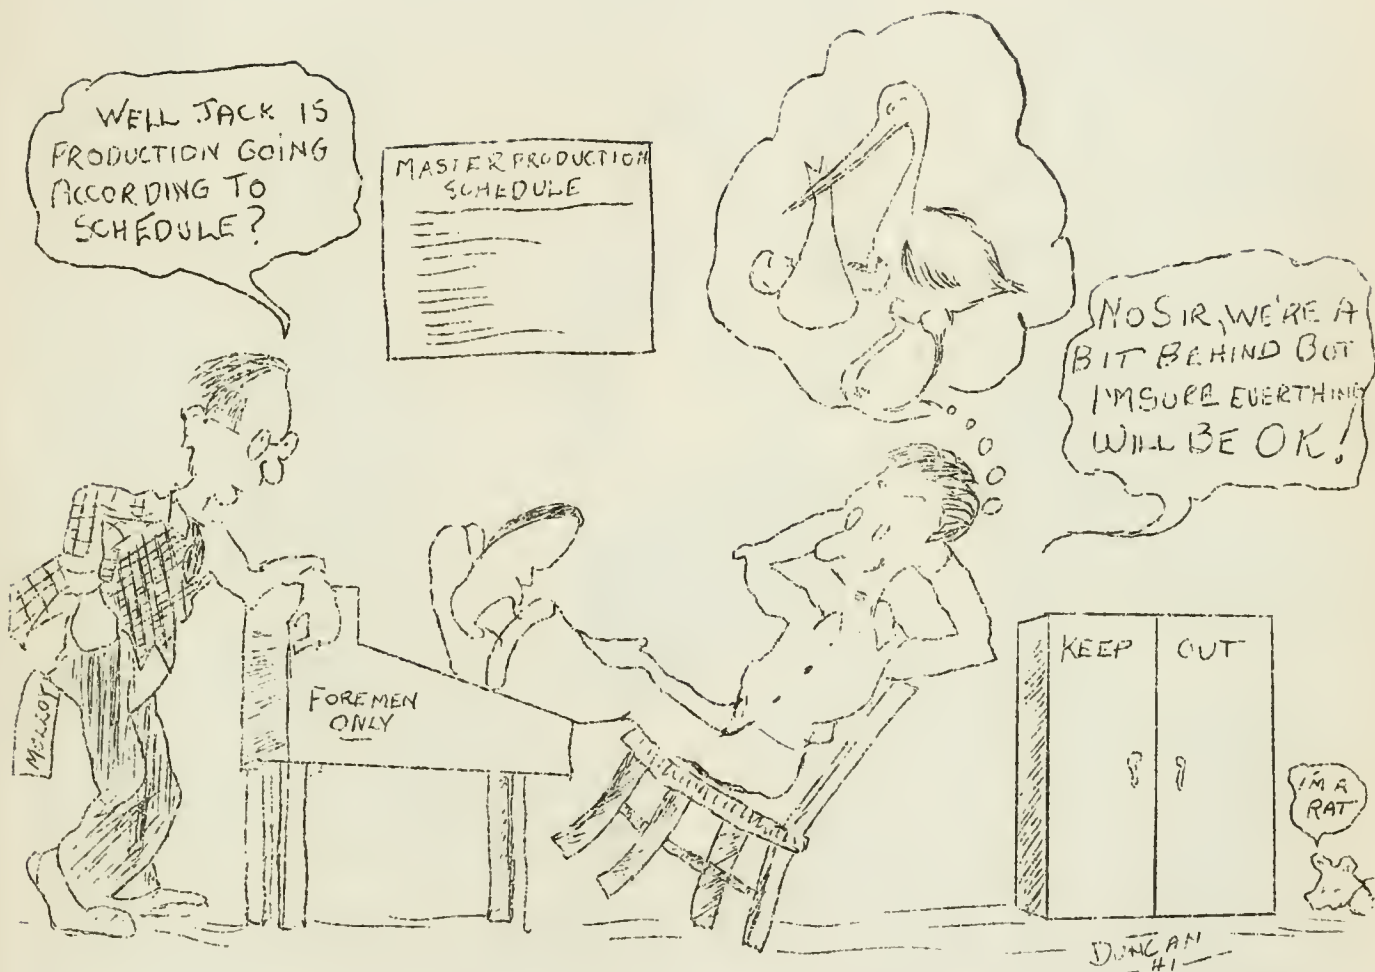 WELL JACK IS
PRODUCTION GOING
ACCORDING TO
SCHEDULE?
MASTER PRODUCTION
SCHEDULE
NO SIR, WE'RE A
BIT BEHIND BUT
I'M SURE EVERTHING
WILL BE OK!
FOREMEN
ONLY
KEEP OUT
I'M A
RAT
DUNCAN